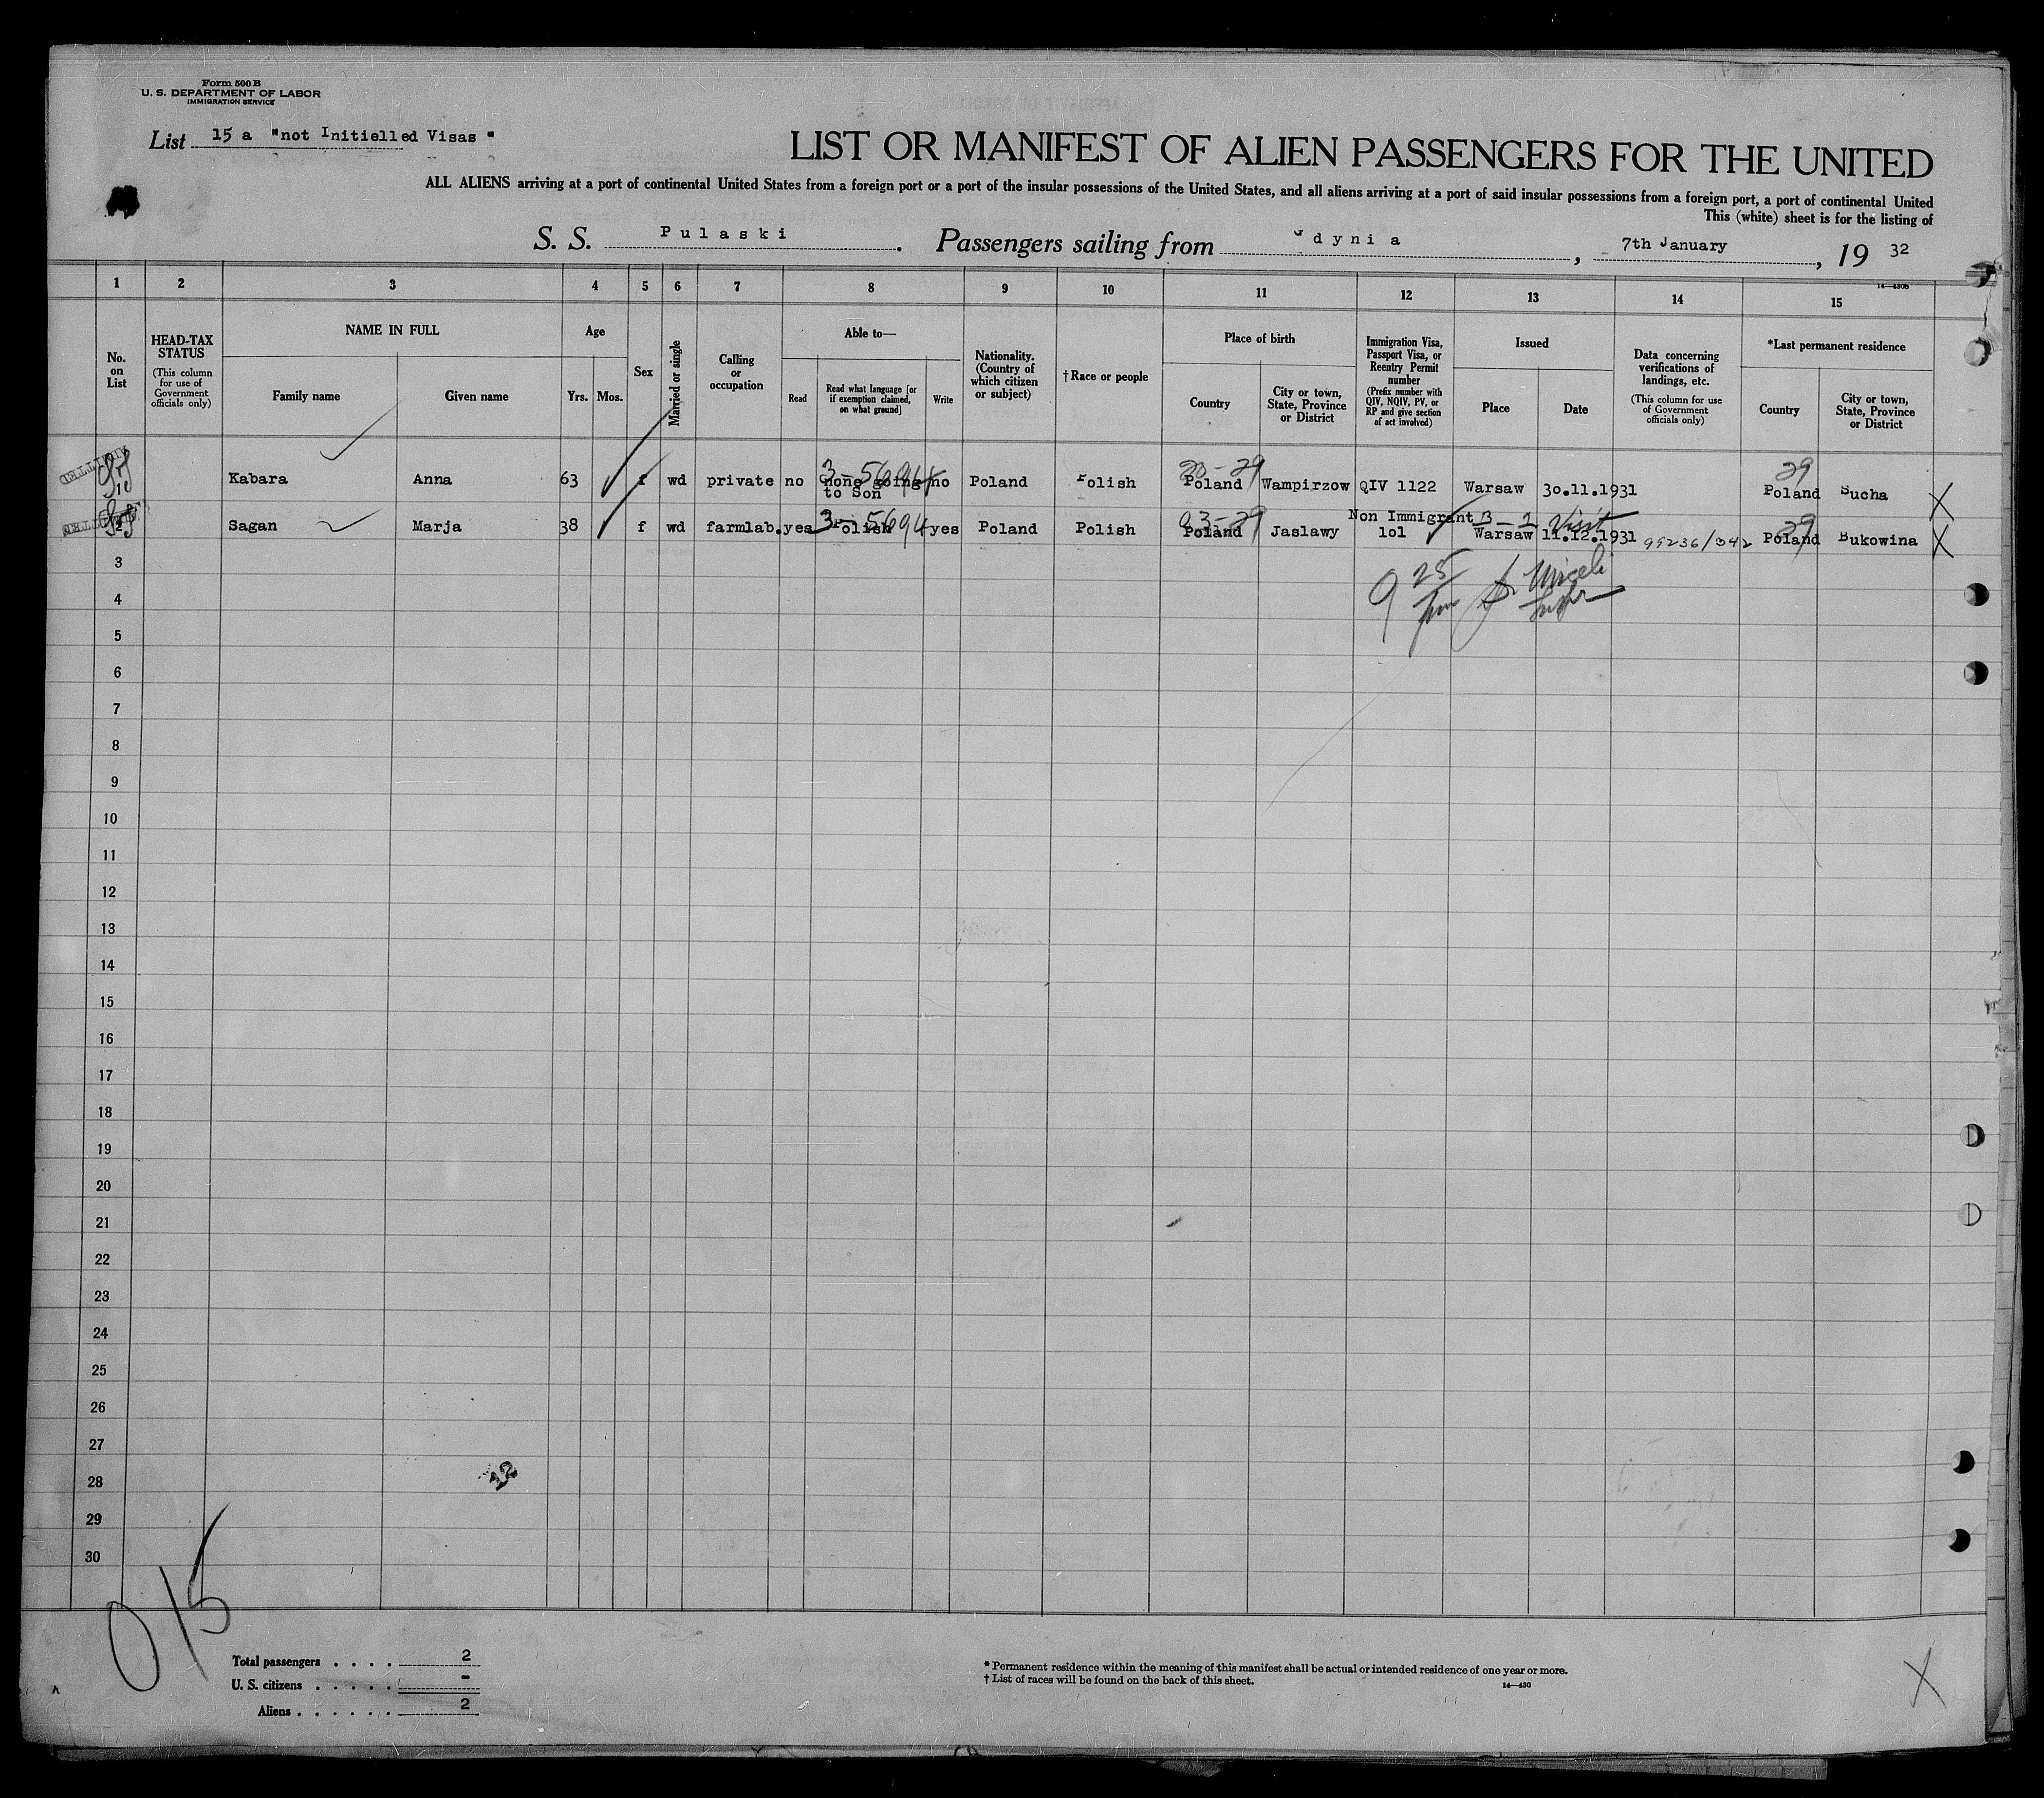 Form 500 B
U. S. DEPARTMENT OF LABOR
IMMIGRATION SERVICE
List 15 a "not Initielled Visas "
LIST OR MANIFEST OF ALIEN PASSENGERS FOR THE UNITED
ALL ALIENS arriving at a port of continental United States from a foreign port or a port of the insular possessions of the United States, and all aliens arriving at a port of said insular possessions from a foreign port, a port of continental United
This (white) sheet is for the listing of
S. S. Pulaski. Passengers sailing from Gdynia, 7th January, 19 32
14—430b
1 2 3 4 5 6 7 8 9 10 11 12 13 14 15
No. on List
HEAD-TAX STATUS
(This column for use of Government officials only)
NAME IN FULL
Family name Given name
Age
Yrs. Mos.
Sex
Married or single
Calling or occupation
Able to—
Read
Read what language [or if exemption claimed, on what ground]
Write
Nationality. (Country of which citizen or subject)
†Race or people
Place of birth
Country
City or town, State, Province or District
Immigration Visa, Passport Visa, or Reentry Permit number
(Prefix number with QIV, NQIV, PV, or RP and give section of act involved)
Issued
Place Date
Data concerning verifications of landings, etc.
(This column for use of Government officials only)
*Last permanent residence
Country
City or town, State, Province or District
3-5694 20-29 29
1 Kabara Anna 63 f wd private no none going to Son no Poland Polish Poland Wampirzow QIV 1122 Warsaw 30.11.1931 Poland Bucha X
3-5694 03-29 Non Immigrant B-2 Visit 29
2 Sagan Marja 38 f wd farmlab. yes Polish yes Poland Polish Poland Jaslawy 101 Warsaw 11.12.1931 99236/342 Poland Bukowina X
3
9 25
4
5
6
7
8
9
10
11
12
13
14
15
16
17
18
19
20
21
22
23
24
25
26
27
28
29
30
12
015
Total passengers . . . . 2
U. S. citizens . . . . . -
Aliens . . . . . . 2
* Permanent residence within the meaning of this manifest shall be actual or intended residence of one year or more.
† List of races will be found on the back of this sheet.
14—430
X